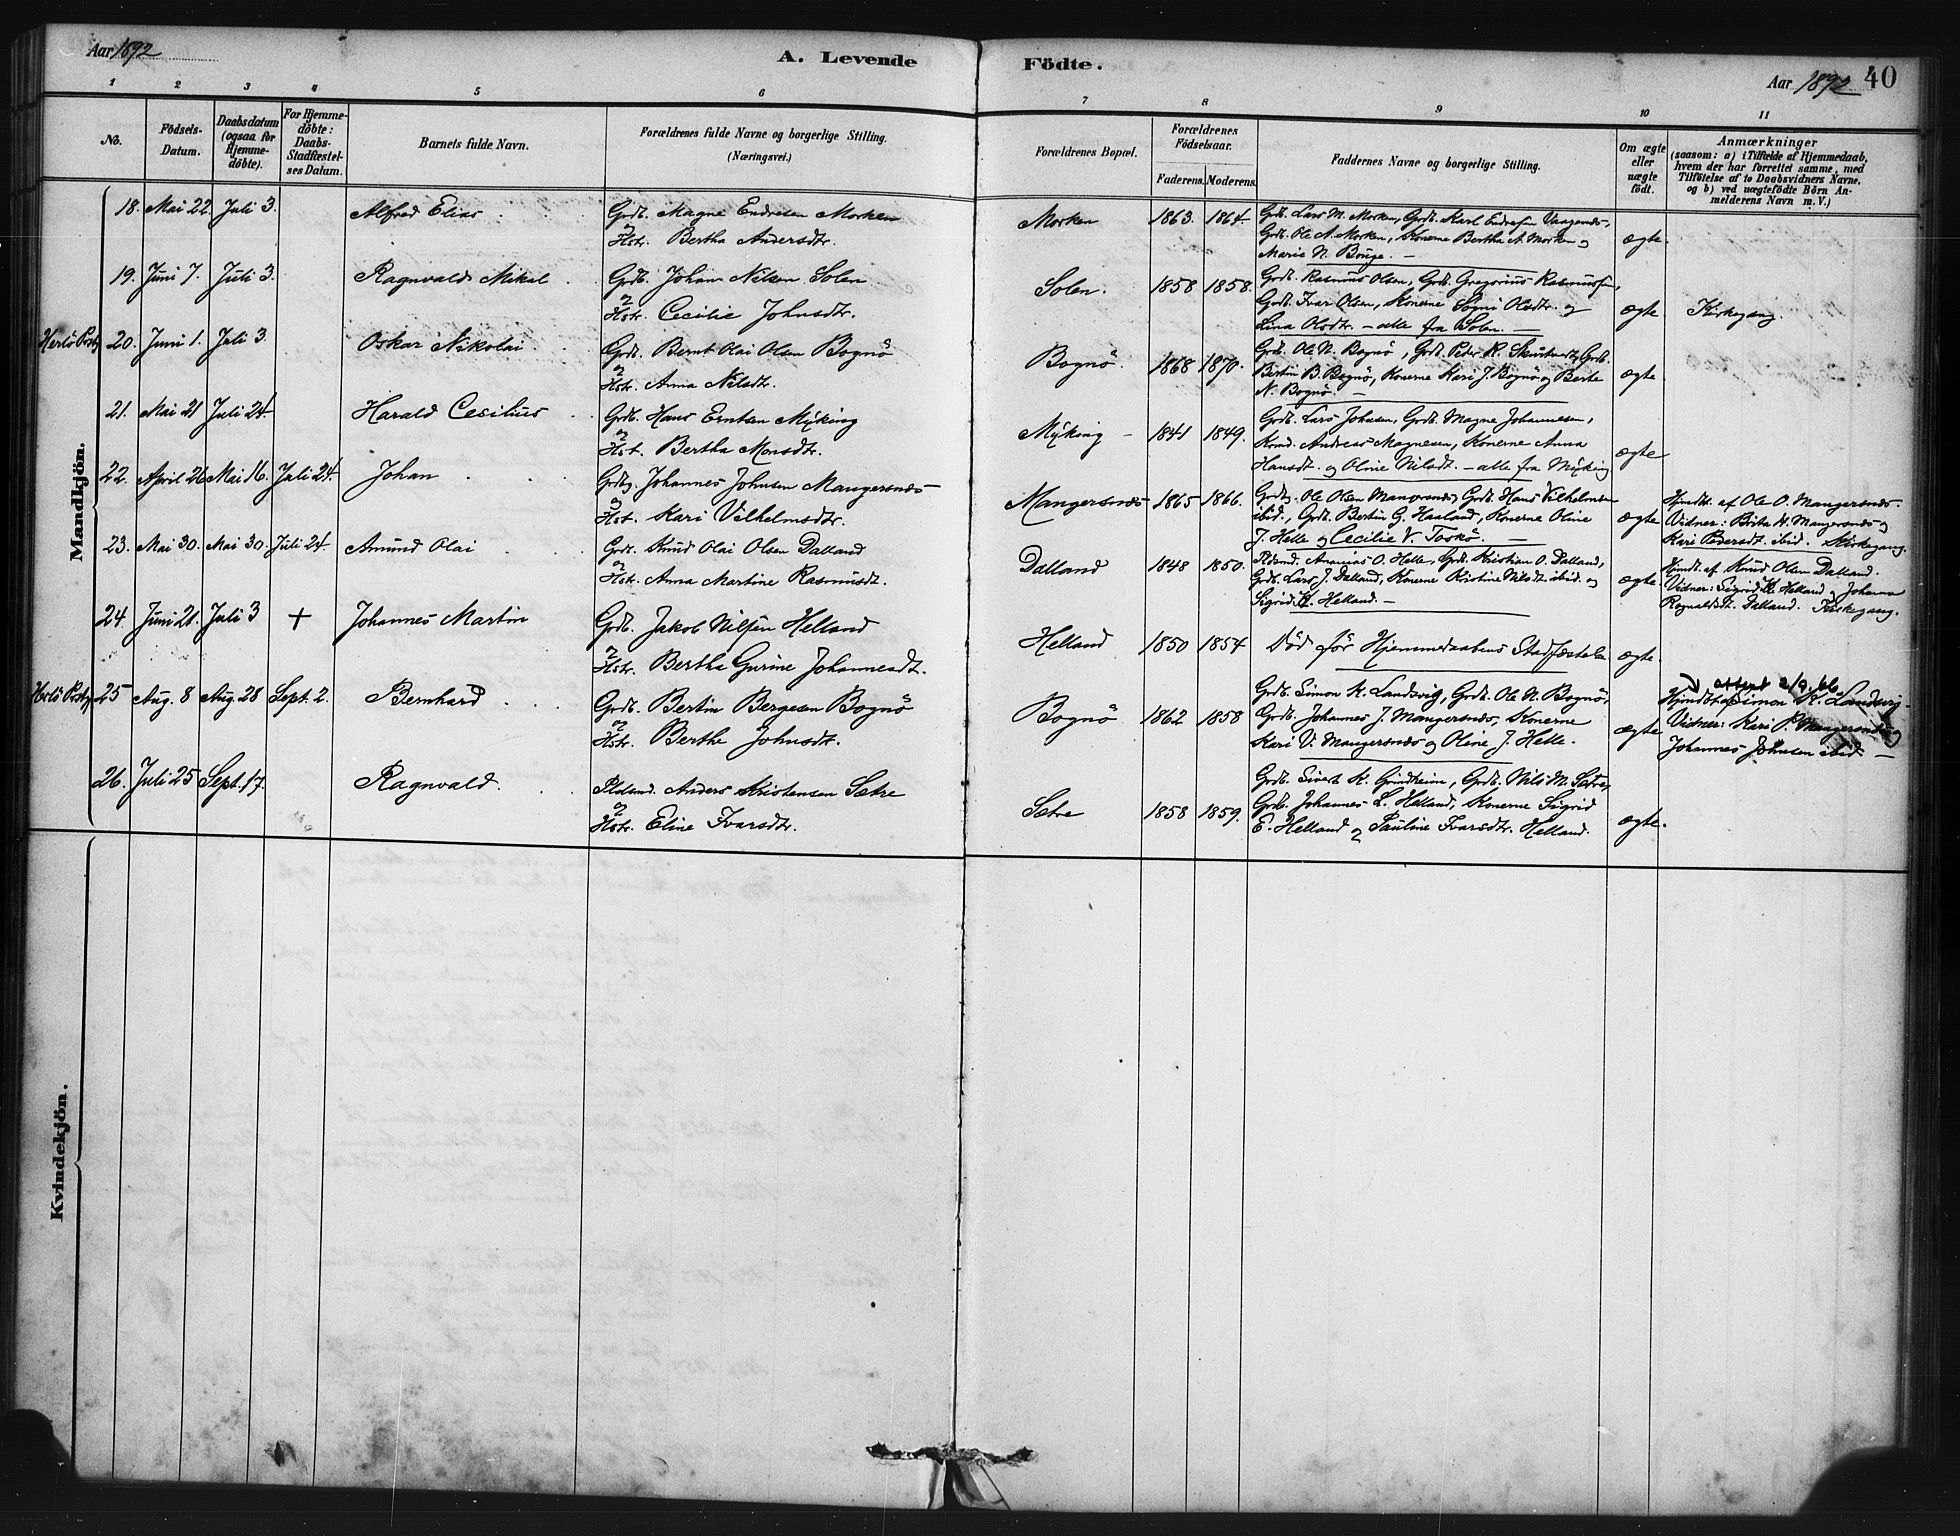 Aar 1892
A. Levende Födte.
Aar 1892 40
1 2 3 4 5 6 7 8 9 10 11
No.
Födsels-Datum.
Daabsdatum (ogsaa för Hjemme-döbte).
For Hjemme-döbte: Daabs-Stadfæstel-ses Datum.
Barnets fulde Navn.
Forældrenes fulde Navne og borgerlige Stilling.
(Næringsvei.)
Forældrenes Bopæl.
Forældrenes Födselsaar.
Faderens. Moderens.
Faddernes Navne og borgerlige Stilling.
Om ægte eller uægte födt.
Anmærkninger
(saasom: a) i Tilfælde af Hjemmedaab, hvem der har forrettet samme, med Tilföielse af to Daabsvidners Navne, og b) ved uægtefödte Börn An-melderens Navn m. V.)
Mandkjön.
18. Mai 22. Juli 3. Alfred Elias
Grdb. Magne Endresen Morken
og
Hstr. Bertha Andersdtr.
Morken 1863. 1864.
Grdb. Lars M. Morken, Grdb. Karl Endresen Vaagenes,
Grdb. Ole A. Morken, Konerne Bertha A. Morken og
Marie N. Bouge. —
ægte.
19. Juni 7. Juli 3. Ragnvald Mikal
Grdb. Johan Nilsen Solen
og
Hstr. Cecilie Johnsdtr.
Solen. 1858 1858.
Grdb. Rasmus Olsen, Grdb. Gregorius Rasmussen,
Grdb. Ivar Olsen, Konerne Sogni Olsdtr. og
Lina Olsdtr. — alle fra Solen. —
ægte Kirkegang.
20. Juni 1. Juli 3. Oskar Nikolai
Grdb. Bernt Olai Olsen Bognö
og
Hstr. Anna Nilsdtr.
Bognö. 1868 1870.
Grdb. Ole N. Bognö, Grdb. Peter R. Grdb.
Bertin B. Bognö, Konerne Kari J. Bognö og Berte
N. Bognö. —
ægte
21. Mai 21 Juli 24. Harald Cesilius
Grdb. Hans Erntsen Mÿking
og
Hst. Bertha Monsdtr.
Mÿking — 1841 1849.
Grdb. Lars Johnsen, Grdb. Magne Johannesen,
Andreas Magnesen, Konerne Anna
Hansdt. og Oline Nilsdt. — alle fra Mÿking
ægte
22. April 26 Mai 16. Juli 24. Johan
Grdbg. Johannes Johnsen Mangersnes
og
Hst. Kari Vilhelmsdtr.
Mangersnes 1865 1866.
Grdbg. Ole Olsen Mangersnes, Grdb. Hans Vilhelmsen
ibid., Grdb. Bertin G. Hauland, Konerne Oline
J. Helle og Cecilie V. Toskö. —
ægte
Hjmdt. af Ole O. Mangersnes.
Vidner: Brita H. Mangersnes og
Kari Pedersdt. ibid. Kirkegang.
23. Mai 30. Mai 30. Juli 24. Amund Olai
Grdb. Knud Olai Olsen Dalland
og
Hst. Anna Martine Rasmusdt.
Dalland 1848 1850.
Ananias O. Helle, Grdb. Kristian O. Dalland,
Grdb. Lars J. Dalland, Konerne Kristine Nilsdt. ibid. og
Sigrid K. Helland. —
ægte.
Hjmdt. af Knud Olsen Dalland.
Vidner: Sigrid K. Helland og Johanna
Dalland. Kirkegang.
24. Juni 21. Juli 3 + Johannes Martin
Grdb. Jakob Nilsen Helland
og
Hstr. Bertha Gurine Johannesdt.
Helland 1850 1854
Död för Hjemmedaabens Stadfæstelse
ægte.
25 Aug. 8 Aug. 28 Sept. 2. Bernhard
Grdb. Bertin Bergesen Bognö
og
Hstr. Berthe Johnsdt.
Bognö 1862 1858
Grdb. Simon K. Landsvig, Grdb. Ole N. Bognö,
Grdb. Johannes J. Mangersnes, Konerne
Kari V. Mangersnes og Oline J. Helle.
ægte
attest 2/9.66
Hjmdt. af Simon K. Landsvig.
Vidner: Kari P. Mangersnes og
Johannes Johnsen ibid. —
26. Juli 25 Sept. 17. Ragnvald.
Anders Kristensen Sætre
og
Hstr. Eline Ivarsdtr.
Sætre 1858 1859.
Grdb. Sivert K. Grindheim, Grdb. Nils M. Sætre,
Grdb. Johannes L. Helland, Konerne Sigrid
E. Helland og Pauline Ivarsdtr. Helland.
ægte.
Kvindekjön.